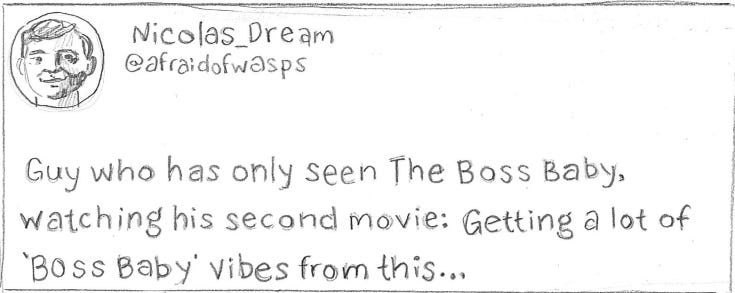 Nicolas_Dream
@afraidofwasps
Guy who has only seen The Boss Baby,
watching his second movie: Getting a lot of
'Boss Baby' vibes from this...